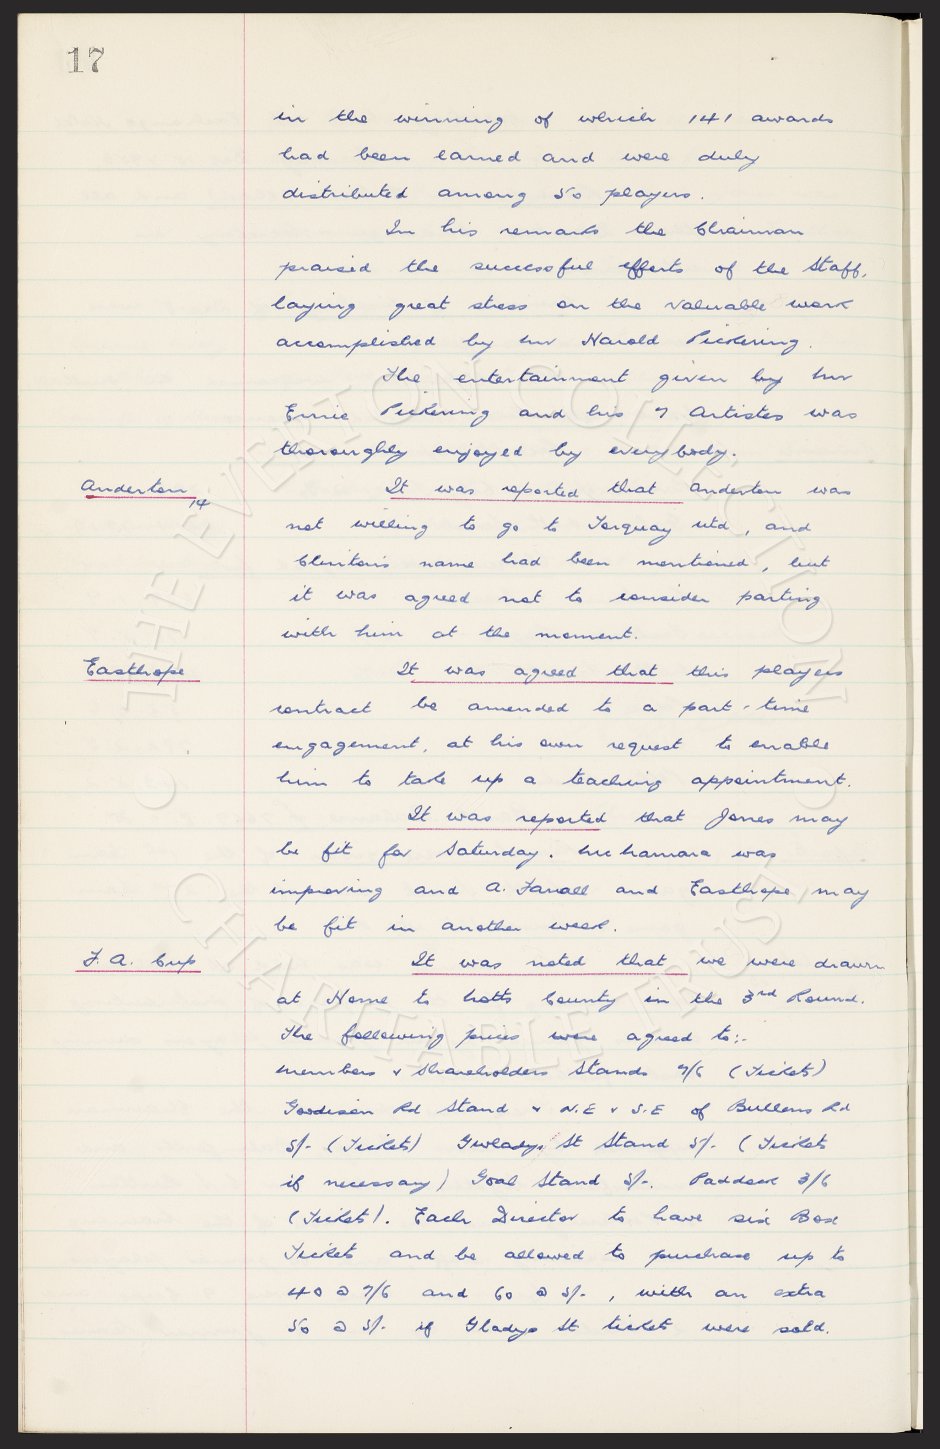 17
in the winning of which 141 awards
had been earned and were duly
distributed among 50 players.
In his remarks the Chairman
praised the successful efforts of the Staff,
laying great stress on the valuable work
accomplished by Mr Harold Pickering.
The entertainment given by Mr
Ernie Pickering and his 7 Artistes was
thoroughly enjoyed by everybody.
Anderton 14
It was reported that Anderton was
not willing to go to Torquay Utd, and
Clinton's name had been mentioned, but
it was agreed not to consider parting
with him at the moment.
Easthope
It was agreed that this players
contract be amended to a part-time
engagement, at his own request to enable
him to take up a teaching appointment.
It was reported that Jones may
be fit for Saturday. McNamara was
improving and A. Farrall and Easthope may
be fit in another week.
F.A. Cup
It was noted that we were drawn
at Home to Notts County in the 3rd Round.
The following prices were agreed to:-
Members & Shareholders Stands 7/6 (Tickets)
Goodison Rd Stand & N.E & S.E of Bullens Rd
5/- (Tickets) Gwladys St Stand 5/- (Tickets
if necessary) Goal Stand 5/-. Paddock 3/6
(Tickets). Each Director to have six Box
Tickets and be allowed to purchase up to
40 @ 7/6 and 60 @ 5/-, with an extra
50 @ 5/- if Gladys St tickets were sold.
© THE EVERTON COLLECTION
CHARITABLE TRUST